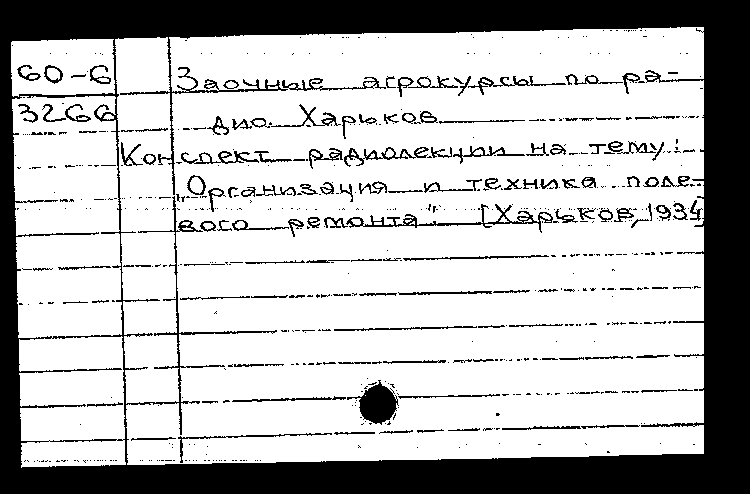 60-6 Заочные агрокурсы по ра-
3266 дио. Харьков
Конспект радиолекции на тему:
„Организация и техника поле-
вого ремонта". [Харьков, 1934]